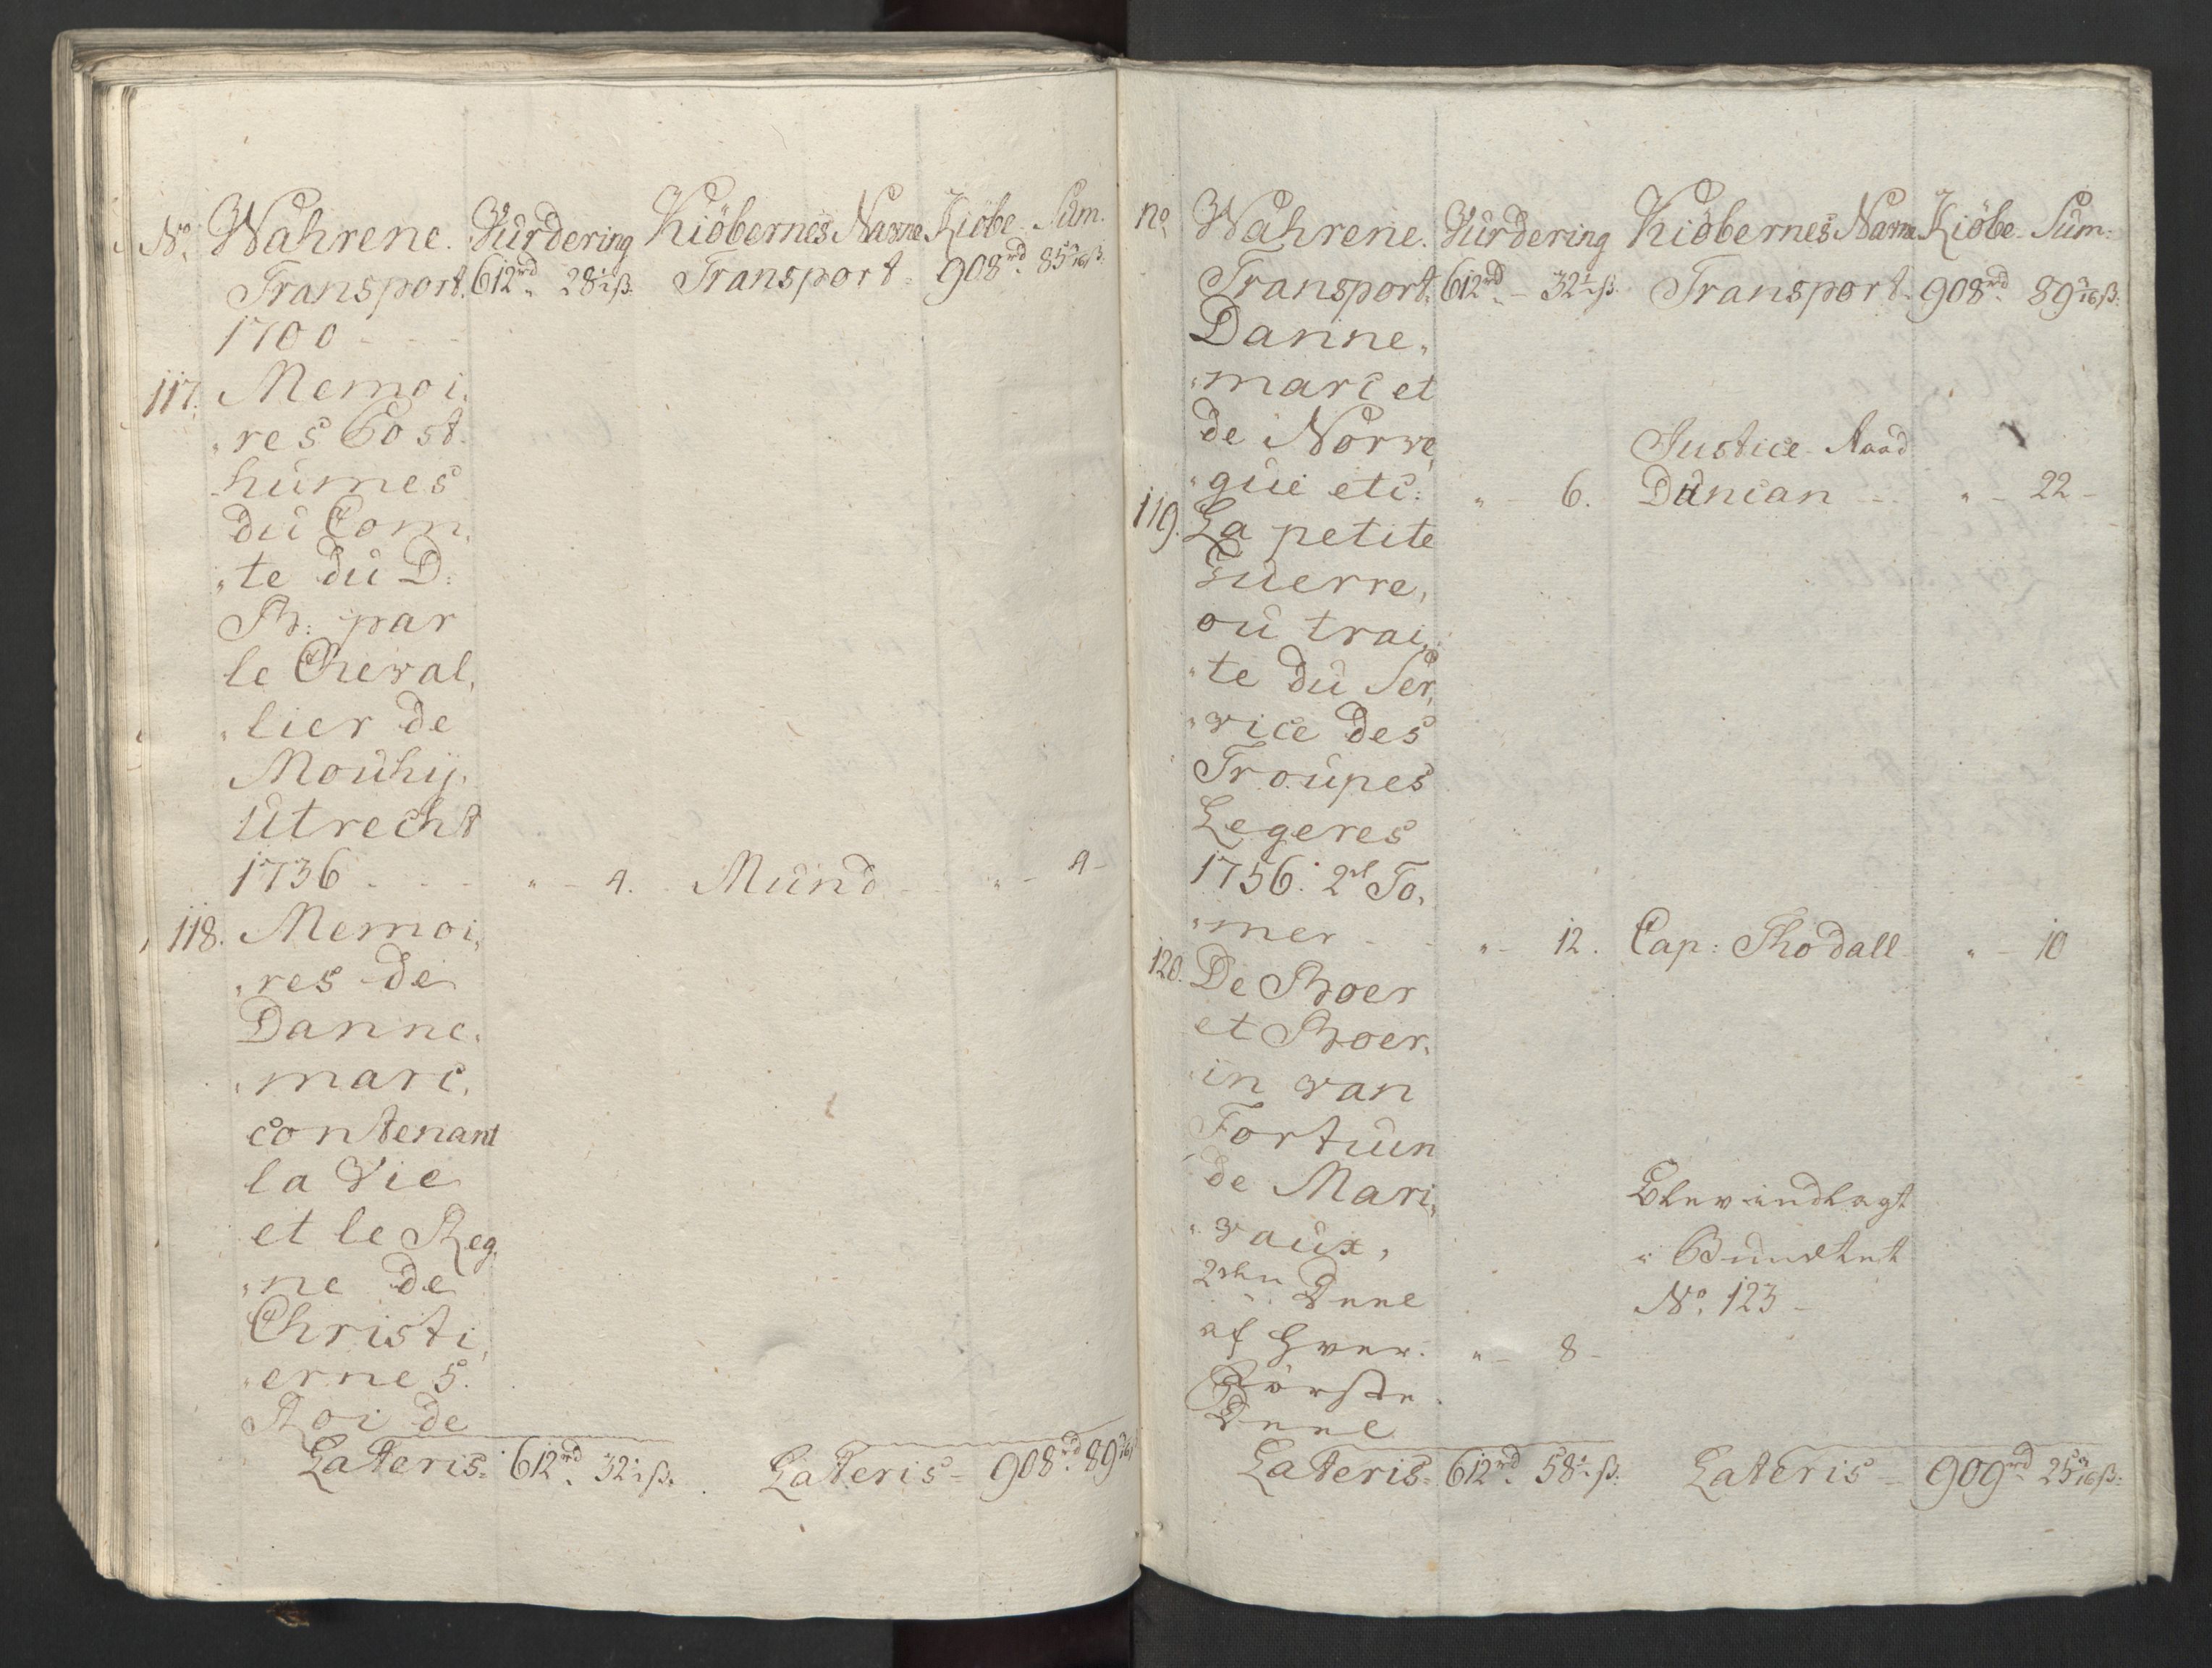 No. Wahrene. Vurdering Kiöbernes Navne Kiöbe Sum.
Transport. 612rd. 28½ ß. Transport - 908rd. 85 5/16 ß.
1700 - - -
117. Memoi,
"res Post
humes
du Com,
"te du D:
R: par
le Cheval,
"lier de
Mouhÿ.
Utrecht
1736 - - - " - 4. Mund - " - 4 -
118. Memoi,
"res de
Danne,
"marc,
contenant
la Vie
et le Reg,
"ne de
Christi,
"erne 5.
Roi de
Lateris. 612rd. 32½ ß. Lateris - 908rd. 89 5/16
no Wahrene. Vurdering Kiöbernes Navne Kiöbe Sum:
Transport. 612rd. - 32½ ß. Transport. 908rd. 89 5/16 ß.
Danne,
"marc et
de Norwe,
"gue etc: " - 6. Justice Raad
Duncan - " - 22 -
119. La petite
Guerre,
ou trai,
"te du Ser,
"vice des
Troupes
Legeres
1756. 2de To,
"mer - - " - 12. Cap: Rhodall " - 10
120. De Boer
et Boer,
in van
Fortuun
de Mari,
"vaux,
2den Deel
af hver. " - 8 -
Förste
Deel
Blev indlagt
i Bundtet
No. 123 -
Lateris. 612rd. 58½ ß. Lateris - 909rd. 25 5/16 ß.